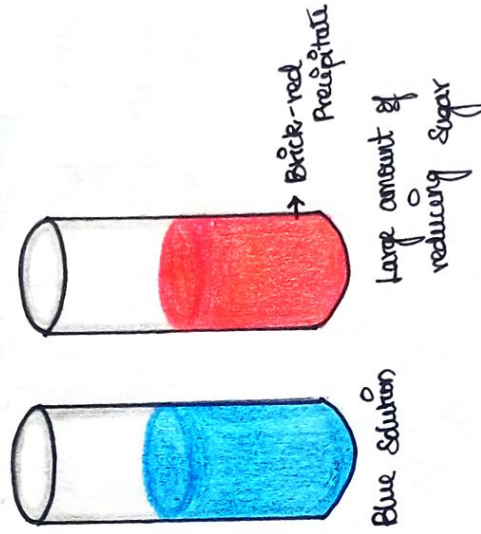 Blue Solution
→ Brick-red
Precipitate
Large amount of
reducing Sugar